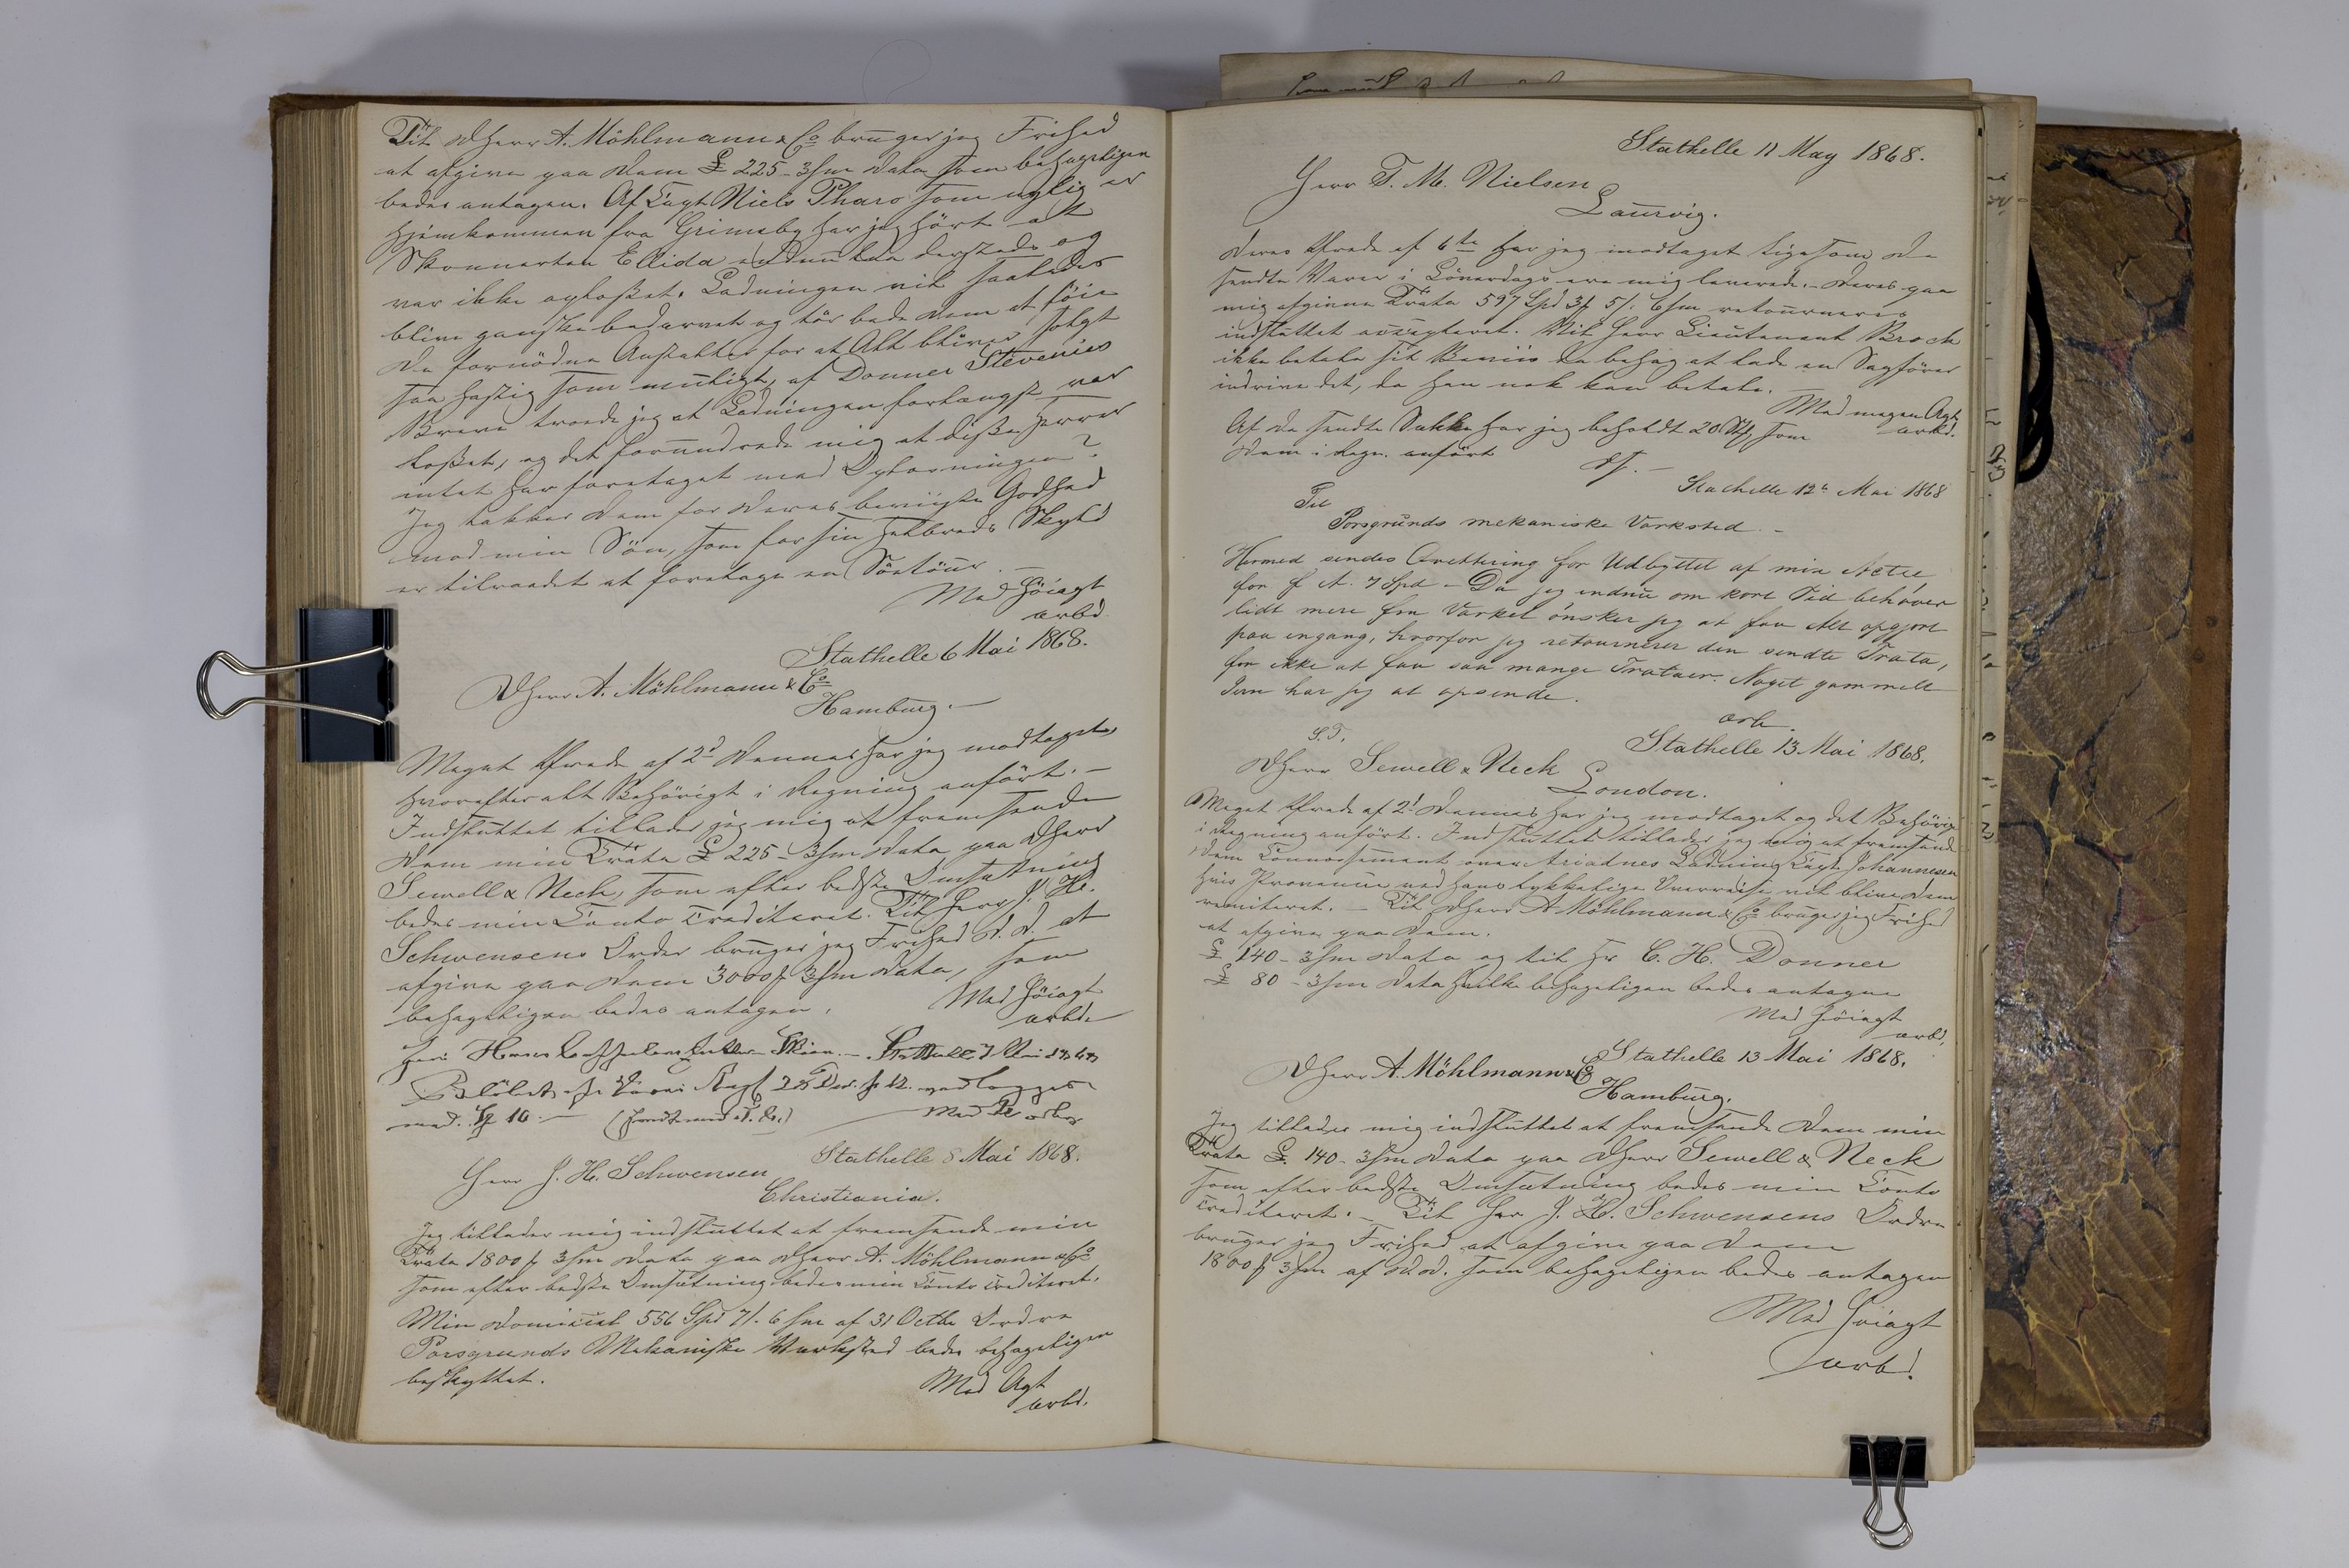 Til DHerr A. Möhlmann & Co bruger jeg Frihed
at afgive paa Dem £ 225 - 3/m Dato som behageligen
bedes antagen. Af Capt Niels Pharo som nylig er
hjemkommen fra Grimsby har jeg hört at
Skonnerten Ellida endnu laa dersteds og
var ikke oplosset. Ladningen vil saaledes
blive ganske bedærvet og tör bede Dem at föie
de fornödne Anstalter for at Alt bliver solgt
saa hastig som muligt, af Donner Stevenies
Breve troede jeg at Ladningen forlængst var
losset, og det forundrede mig at disse Herrer
intet har foretaget med Oplosningen?
Jeg takker Dem for Deres beviiste Godhed
mod min Sön, som for sin Helbreds Skyld
er tilraadet at foretage en Söetour. —
Med Höiagt
arbd
Stathelle 6 Mai 1868.
DHerr A. Möhlmann & Co
Hamburg. —
Meget Ærede af 2d Dennes har jeg modtaget,
hvorefter alt Behörigt i Regning anfört. —
Indsluttet tillader jeg mig at fremsende
Dem min Trata £ 225 - 3/m Dato paa DHerr
Sewell & Neck, som efter bedste Omsætning
bedes min Conto crediteret. Til Herr J. H.
Schwensens Order bruger jeg Frihed D. D. at
afgive paa Dem 3000 3/m Dato, som
behageligen bedes antagen.
Med Höiagt
arbd
Skien. — Stathelle 7 Mai 1868
vedlægges
med 10. —
Stathelle 8 Mai 1868.
Herr J. H. Schwensen
Christiania.
Jeg tillader mig indsluttet at fremsende min
Trata 1800 3/m Dato paa DHerr A. Möhlmann & Co
som efter bedste Omsætning bedes min Conto crediteret.
Min Domicil 556 Spd 7/. 6/m af 31 Octbr Ordre
Porsgrunds Mekaniske Værksted bedes behageligen
beskyttet.
Med Agt
arbd.
Stathelle 11 May 1868.
Herr T. M. Nielsen
Laurvig.
Deres Ærede af 6te har jeg modtaget ligesom de
sendte Varer i Löverdags ere mig leverede. - Deres paa
mig afgivne Trata 597 Spd 3 5/. 6/m retourneres
indsluttet accepteret. Vil Herr Lieutenant Brock
ikke betale sit Beviis da behag at lade en Sagförer
indrive det, da han nok kan betale.
Med megen Agt
arbd.
Af de sendte Sække har jeg beholdt 20 Stk, som
Dem i Regn. anfört
ds. —
Stathelle 12te Mai 1868
Til
Porsgrunds mekaniske Værksted. —
Hermed sendes Qvittering for Udbyttet af min Actie
for f. A. 7 Spd - Da jeg endnu om kort Tid behöver
lidt mere fra Værket önsker jeg at faa Alt opgjort
paa engang, hvorfor jeg retournerer den sendte Trata,
for ikke at faa saa mange Tratter. Noget gammelt
Jern har jeg at opsende.
arb.
S. T.
Stathelle 13. Mai 1868.
DHerr Sewell & Neck
London.
Meget Ærede af 2d Dennes har jeg modtaget og det Behörige
i Regning anfört. Indsluttet tillader jeg mig at fremsende
Dem Connossement over Ariadnes Ladning Capt. Johannesen
hvis Provenue ved hans lykkelige Overreise vil blive Dem
remitteret. — Til DHerr A Möhlmann & Co bruger jeg Frihed
at afgive paa Dem.
£ 140 - 3/m Dato og til Hr C. H. Donner
£ 80 - 3/m Dato hvilke behageligen bedes antagne
Med Höiagt
arbd.
Stathelle 13 Mai 1868.
DHerr A. Möhlmann & Co
Hamburg.
Jeg tillader mig indsluttet at fremsende Dem min
Trata £ 140 - 3/m Dato paa DHerr Sewell & Neck
som efter bedste Omsætning bedes min Conto
crediteret. — Til Herr J. H. Schwensens Ordre
bruger jeg Frihed at afgive paa Dem
1800 3/m af D. D. som behageligen bedes antagen
Med Höiagt
arbd